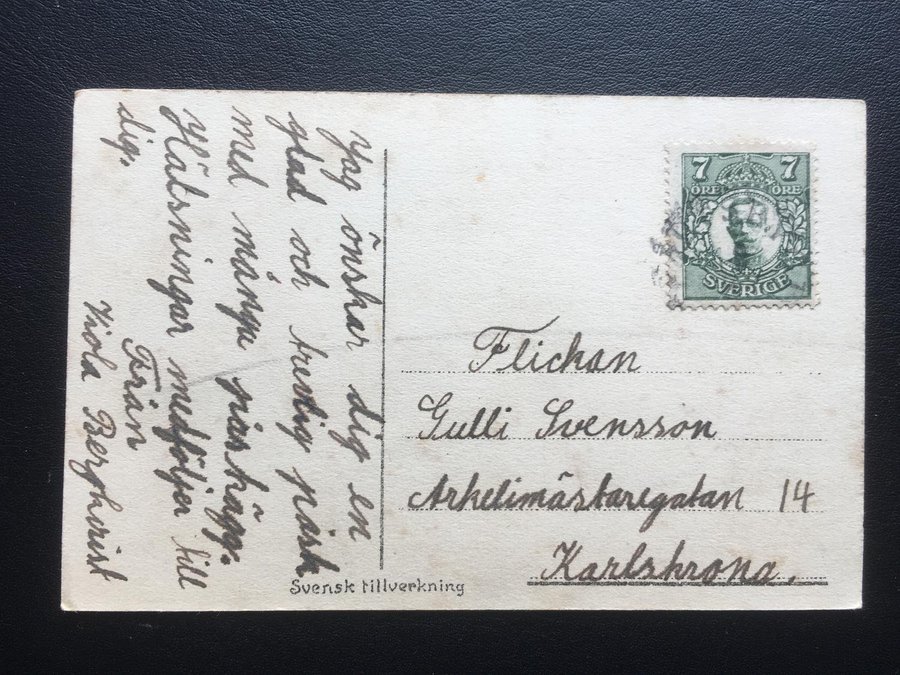 Jag önskar dig en
glad och trevlig påsk
med många påskägg.
Hälsningar medföljer till
dig.
Från
Viola Berghvist
7 7
ÖRE ÖRE
SVERIGE
Flickan
Gulli Svensson
Arkelimästaregatan 14
Karlskrona.
Svensk tillverkning